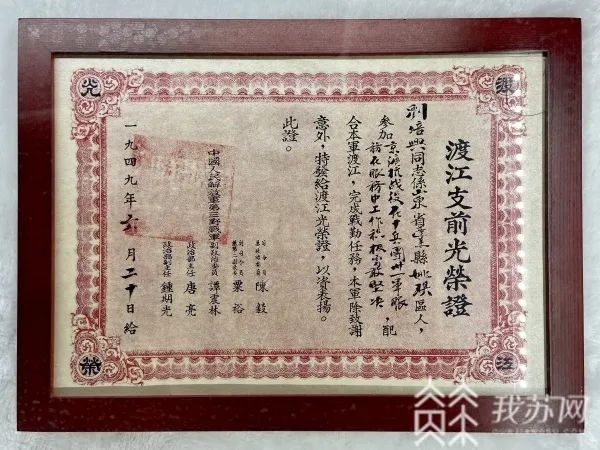 渡
江
光
榮
渡江支前光榮證
培興同志係山東省縣姚區人，
參加京滬杭战役在十兵團卅一軍服
務在服務中工作积极勇敢坚决，配
合本軍渡江，完成戰勤任務，本軍除致謝
意外，特發給渡江光榮證，以資表揚。
此證。
中國人民解放軍第三野戰軍
司令員
陳毅
副司令員
粟裕
副政治委員 譚震林
政治部主任 唐亮
政治部副主任 鍾期光
一九四九年六月二十日給
我苏网